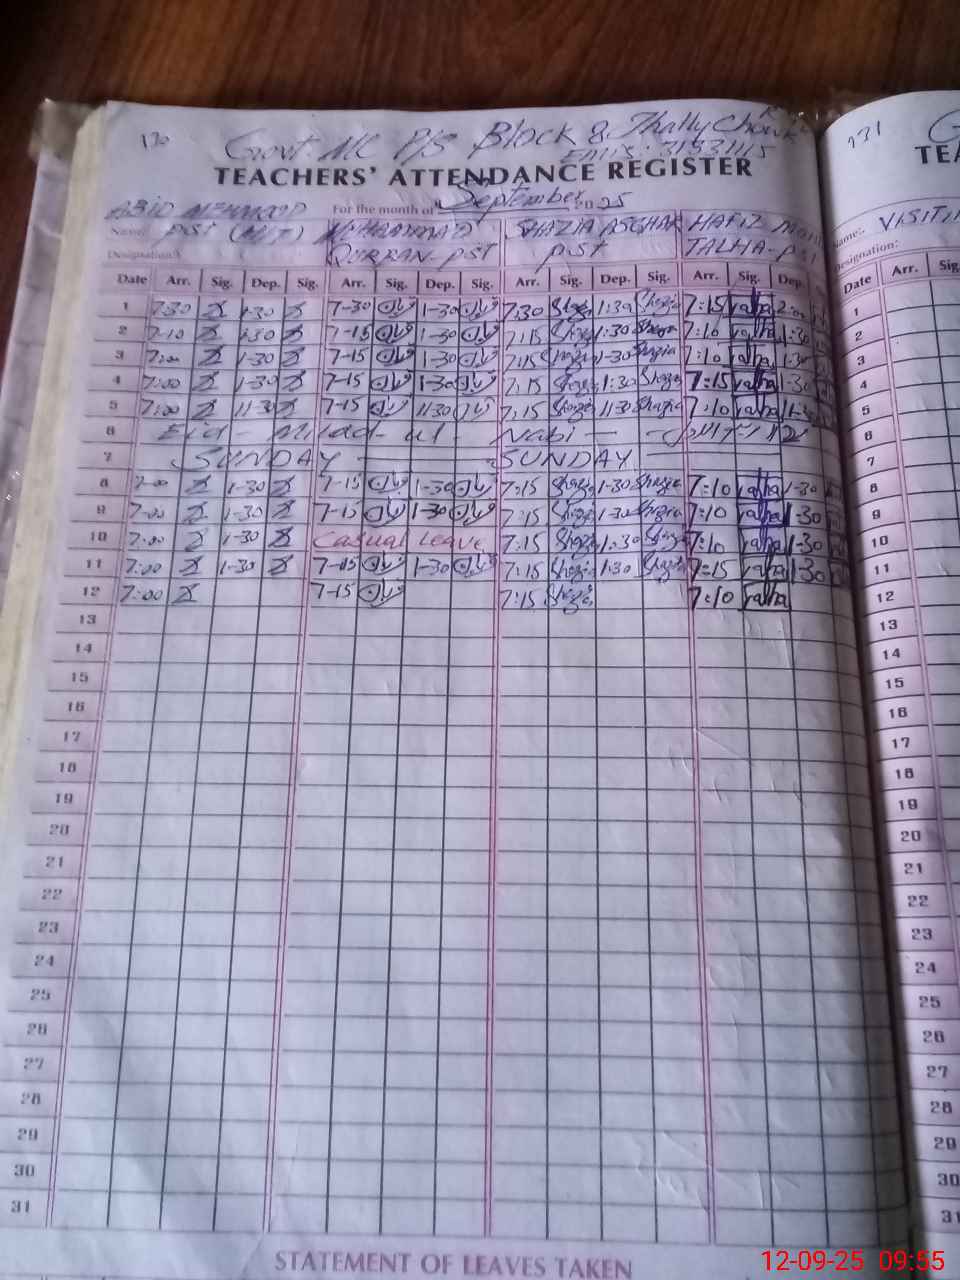 130
Govt. MC P/S Block 8 Thally Chowk
EMIS: 31531115
TEACHERS' ATTENDANCE REGISTER
For the month of September 2025
Name: ABID MEHMOOD PST (HIT) MUHAMMAD SHAZIA ASGHAR HAFIZ
Designation: QURRAN-PST PST TALHA-PST
Date Arr. Sig. Dep. Sig. Arr. Sig. Dep. Sig. Arr. Sig. Dep. Sig. Arr. Sig. Dep.
1 7:30 1-30 7-30 1-30 7:30 Shazia 1:30 Shazia 7:15 Talha
2 7-10 1-30 7-15 1-30 7:15 Shazia 1:30 Shazia 7:10 Talha 1-30
3 7:00 1-30 7-15 1-30 7:15 Shazia 1-30 Shazia 7:10 Talha 1-30
4 7:00 1-30 7-15 1-30 7:15 Shazia 1:30 Shazia 7:15 Talha 1-30
5 7:00 11-30 7-15 11-30 7:15 Shazia 11-30 Shazia 7:10 Talha 11-30
6 Eid - Milad - ul - Nabi -
7 SUNDAY SUNDAY
8 7-00 1-30 7-15 1-30 7:15 Shazia 1-30 Shazia 7:10 Talha 1-30
9 7-00 1-30 7-15 1-30 7:15 Shazia 1-30 Shazia 7:10 Talha 1-30
10 7:00 1-30 Casual Leave 7:15 Shazia 1:30 Shazia 7:10 Talha 1-30
11 7:00 1-30 7-15 1-30 7:15 Shazia 1:30 Shazia 7:15 Talha 1-30
12 7:00 7-15 7:15 Shazia 7:10 Talha
13
14
15
16
17
18
19
20
21
22
23
24
25
26
27
28
29
30
31
STATEMENT OF LEAVES TAKEN
131
Name:
Designation:
Date Arr.
1
2
3
4
5
6
7
8
9
10
11
12
13
14
15
16
17
18
19
20
21
22
23
24
25
26
27
28
29
30
31
12-09-25 09:55